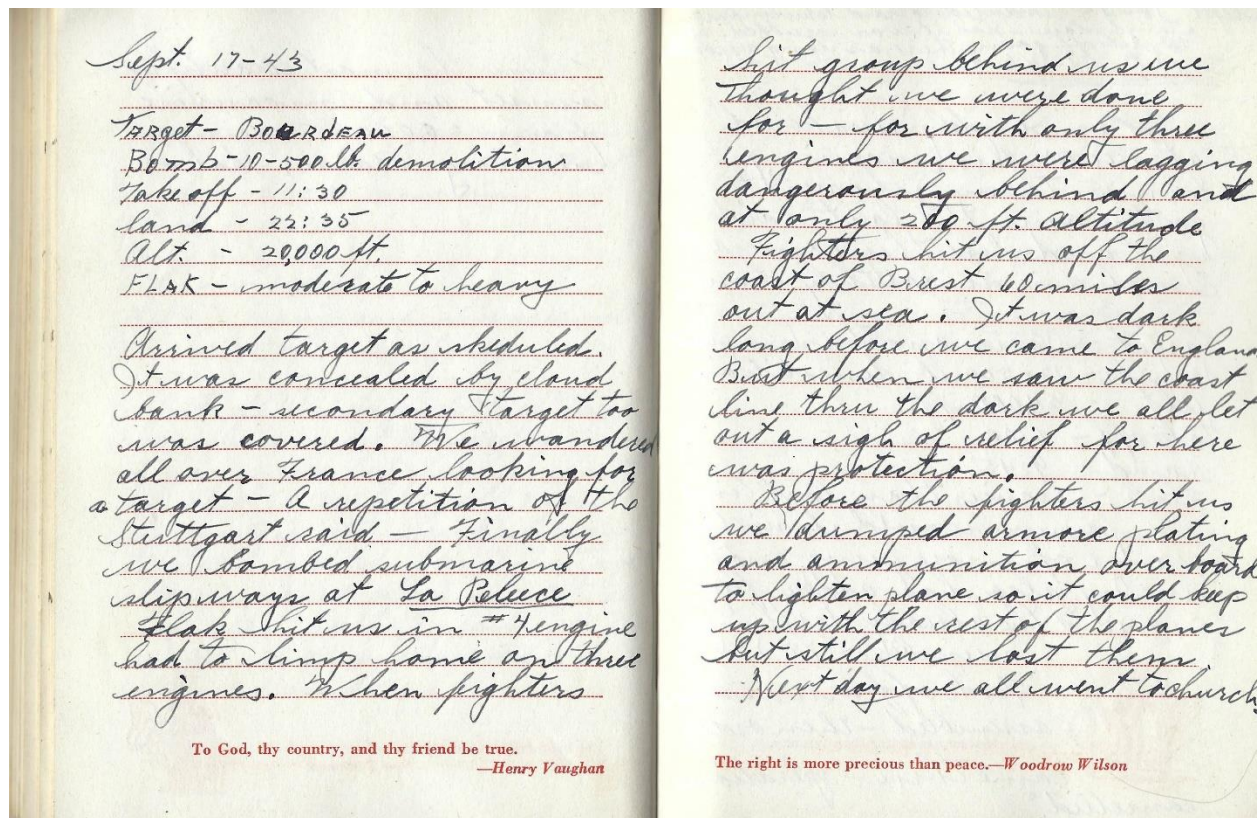 Sept. 17-43
Target - Bourdeau
Bomb - 10-500 lb. demolition
Take off - 11:30
land - 22:35
Alt. - 20,000 ft.
FLAK - moderate to heavy
Arrived target as skeduled.
It was concealed by cloud
bank - secondary target too
was covered. We wandered
all over France looking for
a target - A repetition of the
Stuttgart raid - Finally
we bombed submarine
slipways at La Peleece
Flak hit us in #4 engine
had to limp home on three
engines. When fighters
To God, thy country, and thy friend be true.
—Henry Vaughan
hit group behind us we
thought we were done
for - for with only three
engines we were lagging
dangerously behind and
at only 200 ft. Altitude
Fighters hit us off the
coast of Brest 60 miles
out at sea. It was dark
long before we came to England
But when we saw the coast
line thru the dark we all let
out a sigh of relief for here
was protection.
Before the fighters hit us
we dumped armore plating
and ammunition over board
to lighten plane so it could keep
up with the rest of the planes
but still we lost them.
Next day we all went to church.
The right is more precious than peace.—Woodrow Wilson